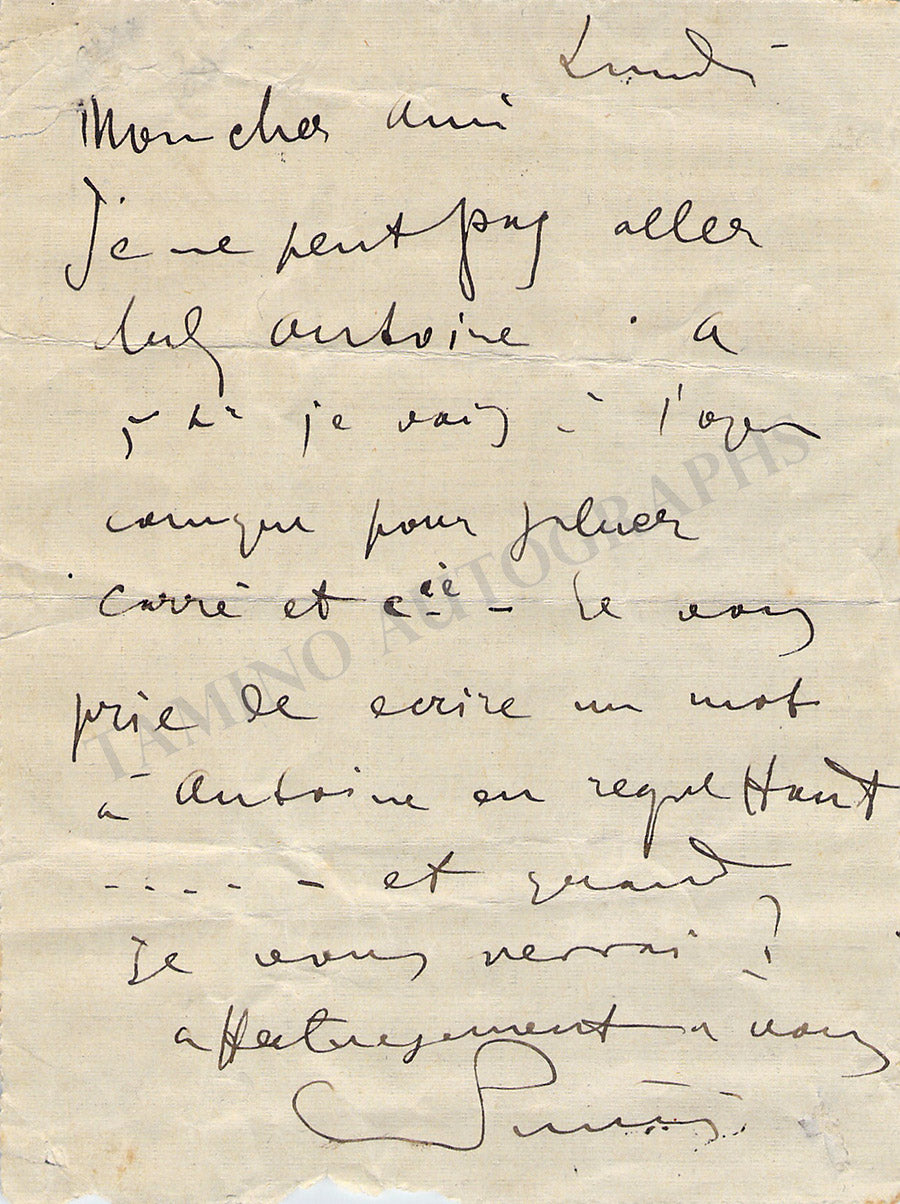 Lundi
Mon cher Ami
Je ne peut pas aller
Antoine . a
5 h je vais à l'opera
comique pour
Carré et Cie - Je vous
prie de ecrire un mot
à Antoine en regrettant
- - - - - et quand
je vous verrai ?
affectuesement a vous
TAMINO AUTOGRAPHS